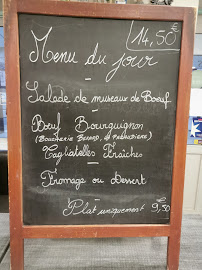 14,50€
Menu du jour
Salade de museaux de Bœuf
Bœuf Bourguignon
(Boucherie
Tagliatelles Fraîches
Fromage ou Dessert
Plat uniquement 9,50 €